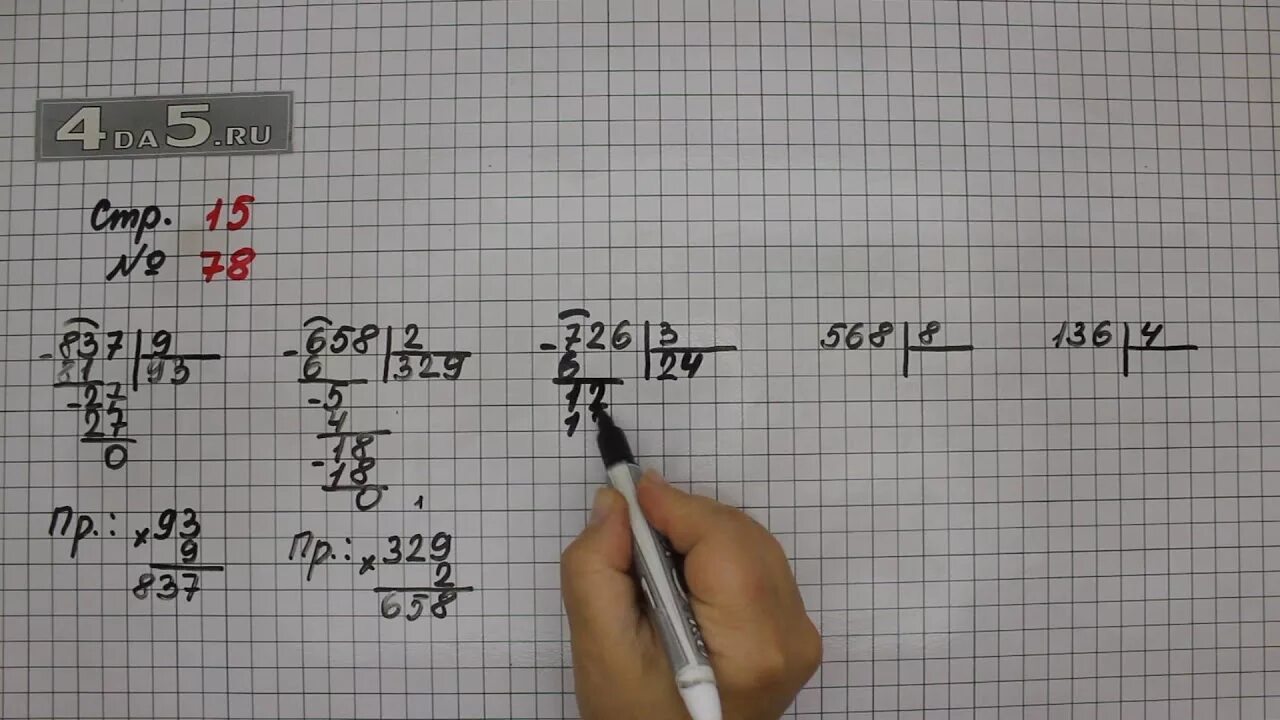 4DA5.RU
Стр. 15
№ 78
-837 | 9
81 | 93
-27
27
0
Пр.: × 93
9
837
-658 | 2
6 | 329
-5
4
-18
18
0
1
Пр.: × 329
2
658
-726 | 3
6 | 24
12
1
568 | 8
136 | 4